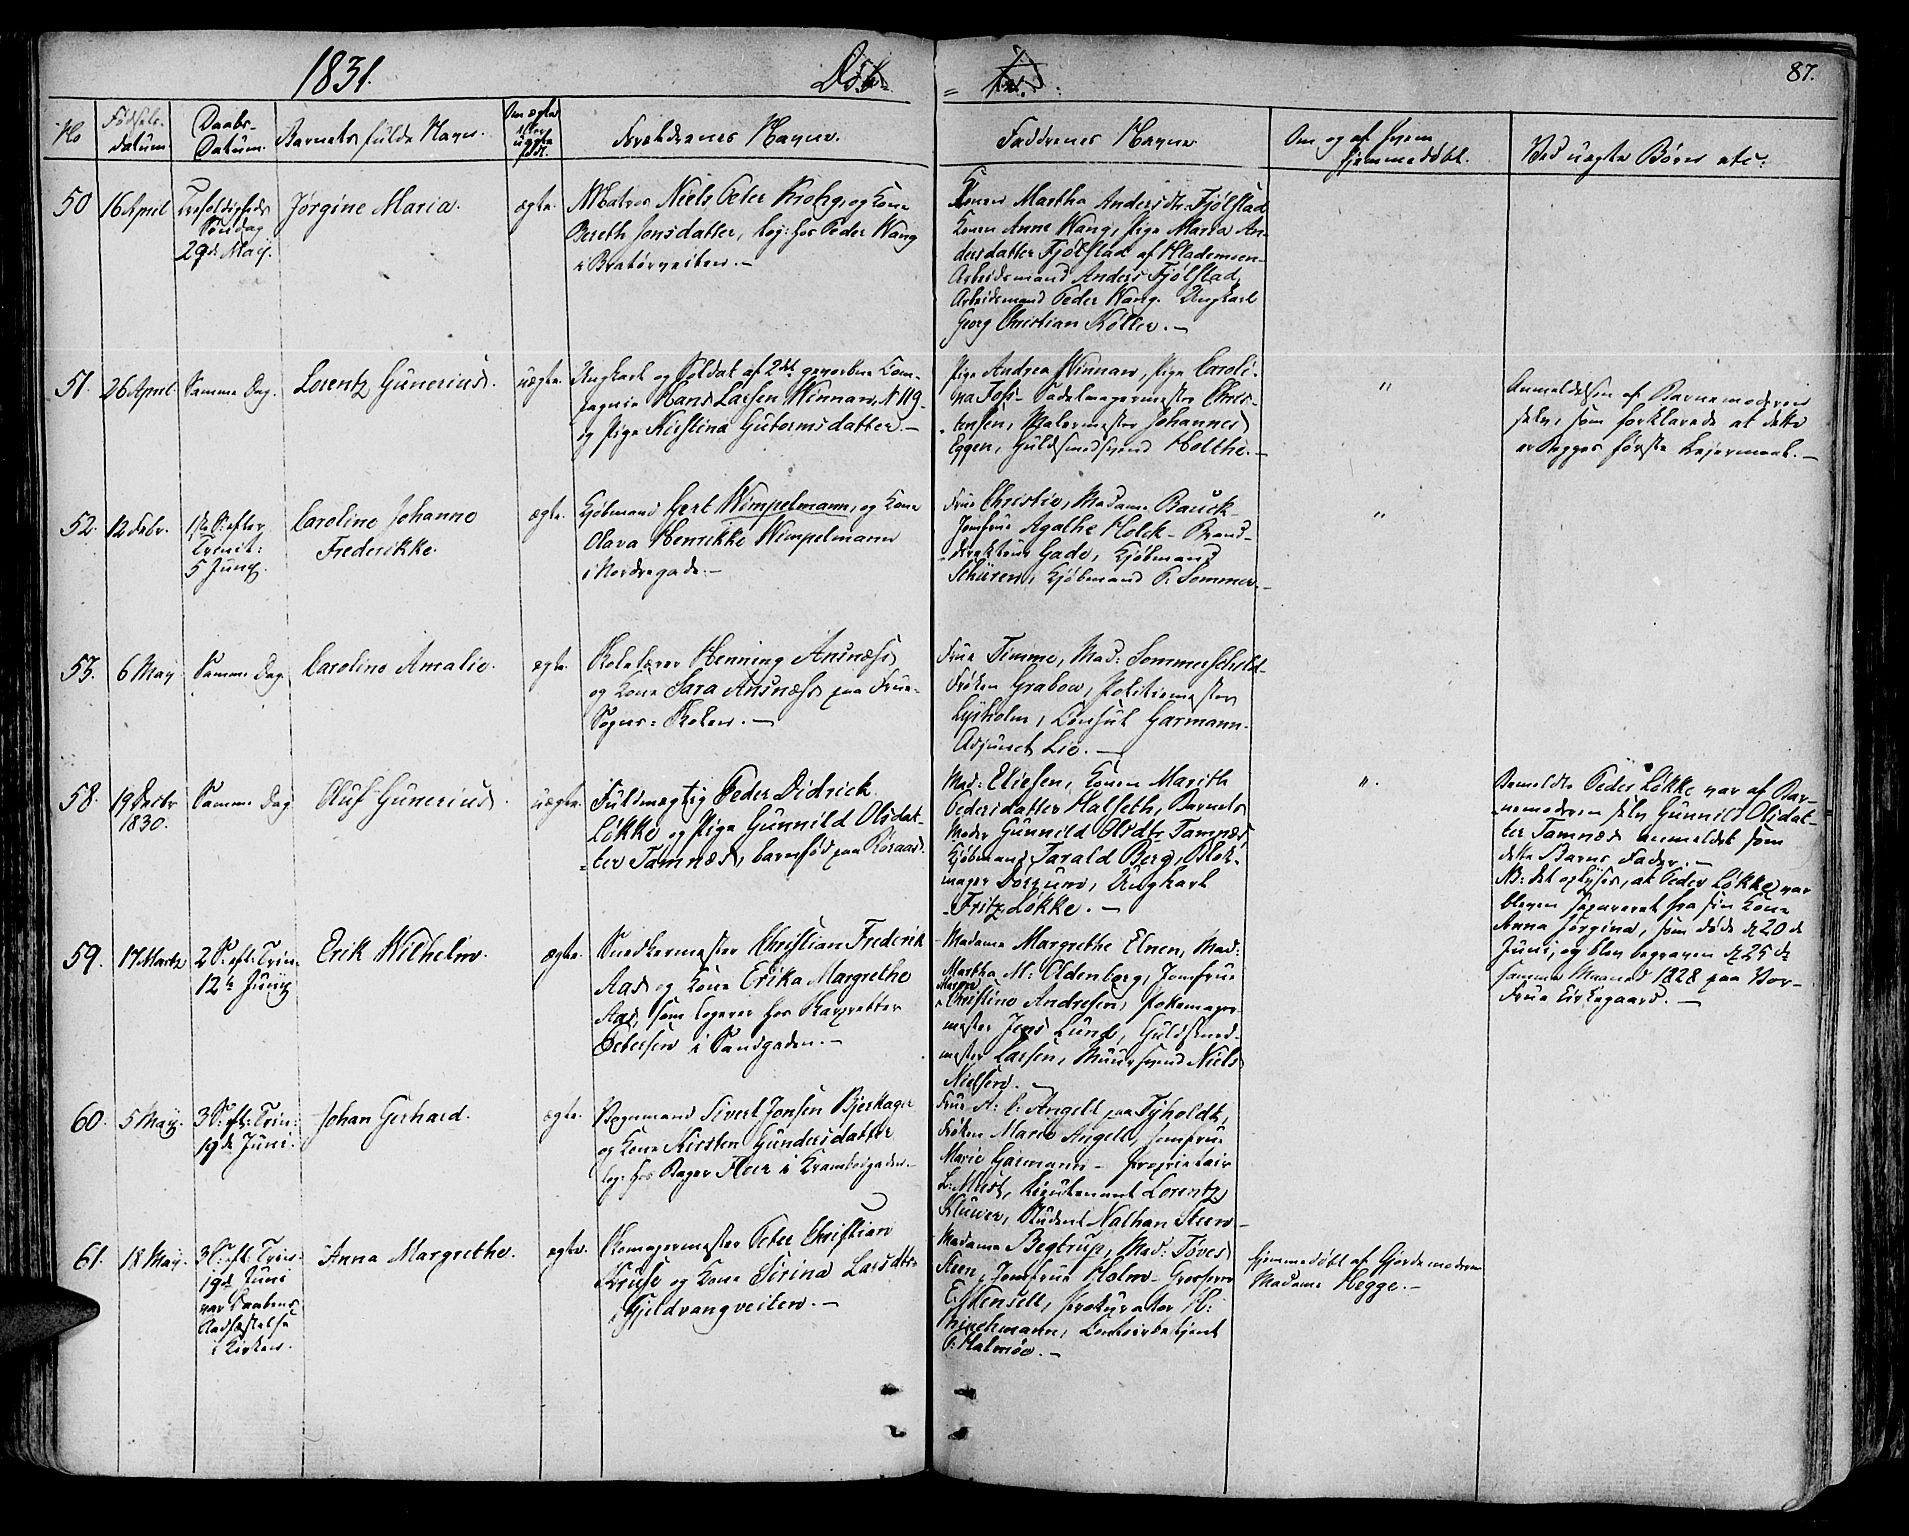 1831.
Døb-
= te.
87.
No
Fødsels-
datum.
Daabs-
Datum.
Barnets fulde Navn.
Om ægte
eller
uægte
født.
Forældrenes Navne.
Faddrenes Navne
Om og af hvem
hjemmedøbt.
Ved uægte Børn etc:
50
16 April
Trefoldigheds
Søndag
29de Maij.
Jørgine Maria.
ægte.
Matros Niels Peter Krohg, og Kone
Bereth Jonsdatter, log: hos Peder Wang
i Bratørveiten.-
Konen Martha Andersdtr Fjølstad
Konen Anne Wang, Pige Maria An-
dersdatter Fjølstad af Hlademoen-
Arbeidsmand Anders Fjølstad,
Arbeidsmand Peder Wang. Ungkarl
Georg Christian Køller.-
51.
26 April
Samme Dag.
Lorentz Gunerius.
uægte.
Ungkarl og Soldat af 2det gevorbne Com-
pagnie Hans Larsen Winnan, N 119-
og Pige Kirstina Gutormsdatter.-
Pige Andrea Winnan, Pige Caroli-
na Foss- Sadelmagermester Chris-
tensen, Malermester Johannes
Eggen, Guldsmedsvend Holthe.-
"
Anmeldelsen af Barnemoderen
selv, som forklarede at dette
er Begges første Leiermaal.-
52.
12 Febr.
1ste S: efter
Trinit:
5 Junij.
Caroline Johanne
Frederikke.
ægte.
Kjøbmand Gert Wimpelmann, og Kone
Olava Henrikke Wimpelmann
i Nordregade.-
Frue Christie, Madame Bauck-
Jomfrue Agathe Holck- Brand-
direkteur Gade, Kjøbmand
Schüren, Kjøbmand P. Sommer.-
"
53.
6 May
Samme Dag
Caroline Amalie.
ægte.
Skolelærer Henning Ansnæs
og Kone Sara Ansnæs paa Frue-
Sogns-Skolen.-
Frue Timme, Mad: Sommerschild-
Frøken Grabow, Politiemester
Lysholm, Consul Garmann-
Adjunct Lie.-
58.
19 Decbr
1830.
Samme Dag
Oluf Gunerius.
uægte.
Fuldmægtig Peder Didrick
Løkke og Pige Gunnild Olsdat-
ter Tamnæs, barnfød paa Røraas.
Mad: Eliesen, Konen Marith
Pedersdatter Halseth, Barnets
Moder Gunnild Olsdtr Tamnæs,
Kjøbmand Tarald Berg, Blok-
mager Dorsum, Ungkarl
Fritz Løkke.-
".
Bemeldte Peder Løkke var af Bar-
nemoderen selv Gunnild Olsdat-
ter Tamnæs anmeldet som
dette Barns Fader.-
NB: det oplyses, at Peder Løkke var
bleven separeret fra sin Kone
Anna Jørgine, som døde d 20 de
Juni, og blev begraven d 25 de
samme Maaned 1828 paa Vor-
Frue Kirkegaard.-
59.
17 Martz
2 S: eft: Trin:
12te Junij
Erik Wilhelm.
ægte.
Snedkermester Christian Frederik
Aas og Kone Erika Margrethe
Aas, som logerer hos Skarpretter
Petersen i Sandgaden.-
Madame Margrethe Elnen, Mad:
Martha M: Oldenborg, Jomfrue
Christine Andresen,
mester Jens Lund, Guldsmed-
mester Larsen, Muursvend Niels
Nielsen.-
60.
5 Maij.
3 S: eft: Trin:
19de Juni.
Johan Gerhard.
ægte.
Vognmand Sivert Jonsen Bjerkager
og Kone Kirsten Gundersdatter
log: hos Bager Flor i Krambodgaden.-
Frue A: C: Angell paa Tyholdt,
Frøken Marie Angell, Jomfrue
Marie Garmann- Proprietair
L: Must, Lieutenant Lorentz
Klüwer, Student Nathan Steen-
61.
18 May.
3 S: eft: Trin-
19de Juni
var Daabens
Stadfæstelse
i Kirken.
Anna Margrethe.
ægte.
Skomagermester Peter Christian
Kruse og Kone Sirina Larsdtr
i Gjeldvangveiten.-
Madame Begtrup, Mad: Tøves
Steen, Jomfrue Holm- Grosserer
Eskensell, Prokurator H:
Contoirbetjent
P: Malmøe.-
hjemmedøbt af Gjordemoderen
Madame Hegge.-